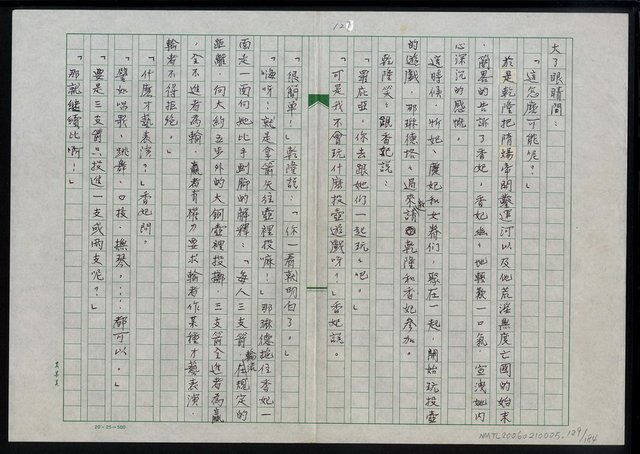 127
大了眼睛問：
「這怎麼可能呢？」
於是乾隆把隋煬帝開鑿運河以及他荒淫無度亡國的始末
，簡畧的告訴了香妃，香妃幽幽地輕歎一口氣，宣洩她內
心深沉的感慨。
這時候，忻妃、慶妃和女眷們，聚在一起，開始玩投壺
的遊戲，那琳德格過來請乾隆和香妃參加。
乾隆笑了，跟香妃說：
「霍庇亞，你去跟她們一起玩吧。」
「可是我不會玩什麼投壺遊戲呀！」香妃說。
「很簡單！」乾隆說：「你一看就明白了。」
「嗨呀！就是拿箭矢往壺裡投嘛！」那琳德格拉住香妃一
面走一面向她比手劃腳的解釋：「每人三支箭，輪流在規定的
距離，向大約五步外的大銅壺裡投擲，三支箭全進者為贏
，全不進者為輸，贏者有權力要求輸者作某種才藝表演，
輸者不得拒絕。」
「什麼才藝表演？」香妃問。
「譬如唱歌、跳舞、口技、撫琴，……都可以。」
「要是三支箭，投進一支或兩支呢？」
「那就繼續比啊！」
20×25=500
NMTL20060210005
129/184